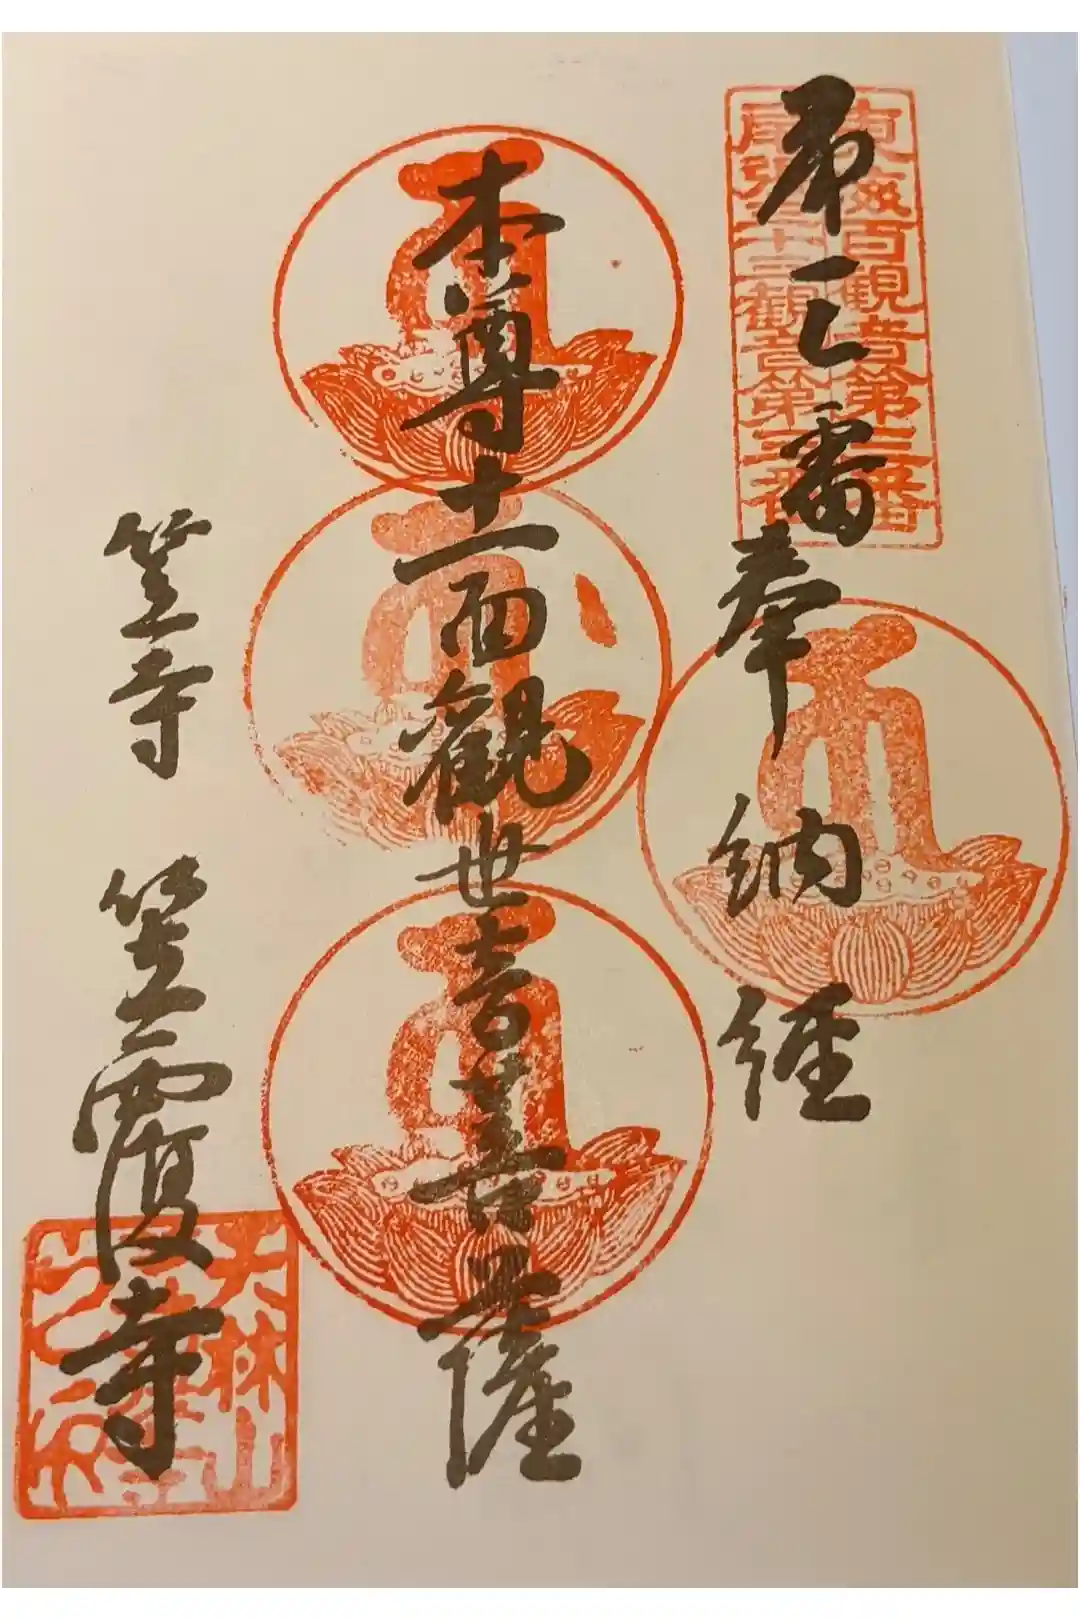 東海百観音第三番
尾張三十三観音第三番
第三番
奉納経
本尊十一面観世音菩薩
笠寺 笠覆寺
天林山